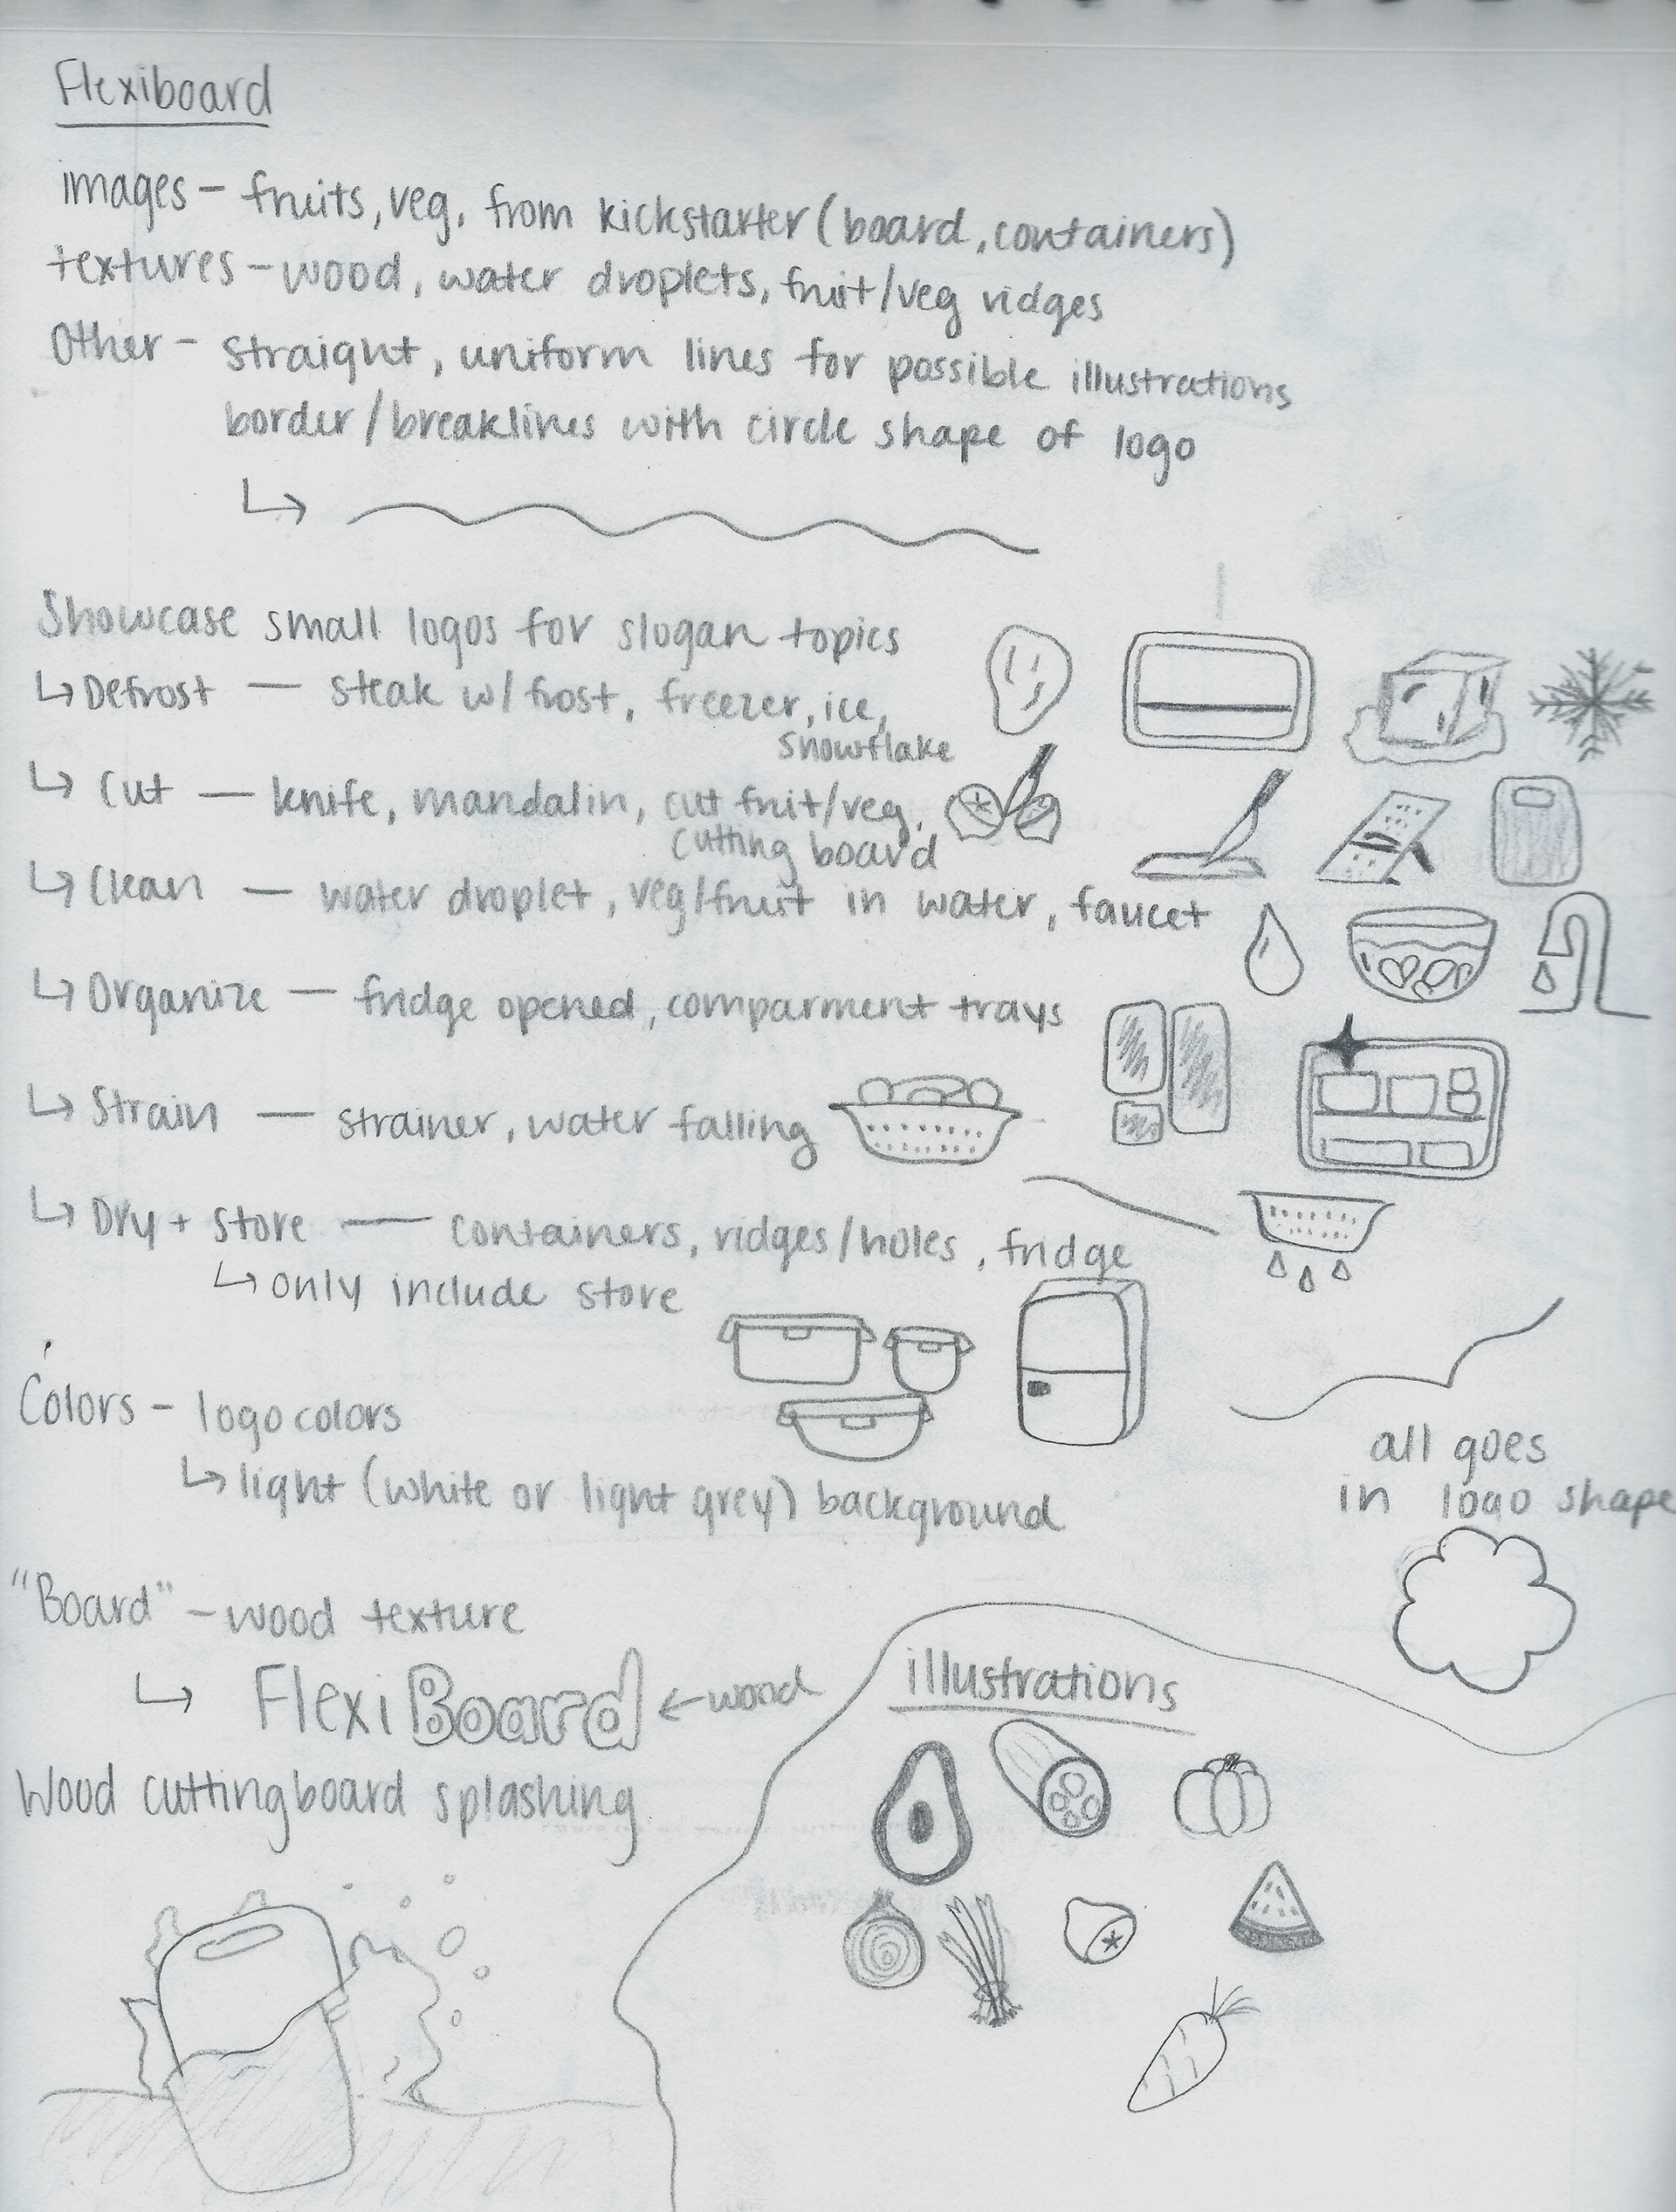 Flexiboard
images - fruits, veg, from kickstarter (board, containers)
textures - wood, water droplets, fruit/veg ridges
Other - straight, uniform lines for possible illustrations
border/breaklines with circle shape of logo
Showcase small logos for slogan topics
↳ Defrost — steak w/ frost, freezer, ice,
snowflake
↳ Cut — knife, mandalin, cut fruit/veg,
cutting board
↳ Clean — water droplet, veg/fruit in water, faucet
↳ Organize — fridge opened, comparment trays
↳ Strain — strainer, water falling
↳ Dry + store — containers, ridges/holes, fridge
↳ only include store
Colors - logo colors
↳ light (white or light grey) background
all goes
in logo shape
"Board" - wood texture
↳ Flexi Board ← wood
Wood cuttingboard splashing
illustrations